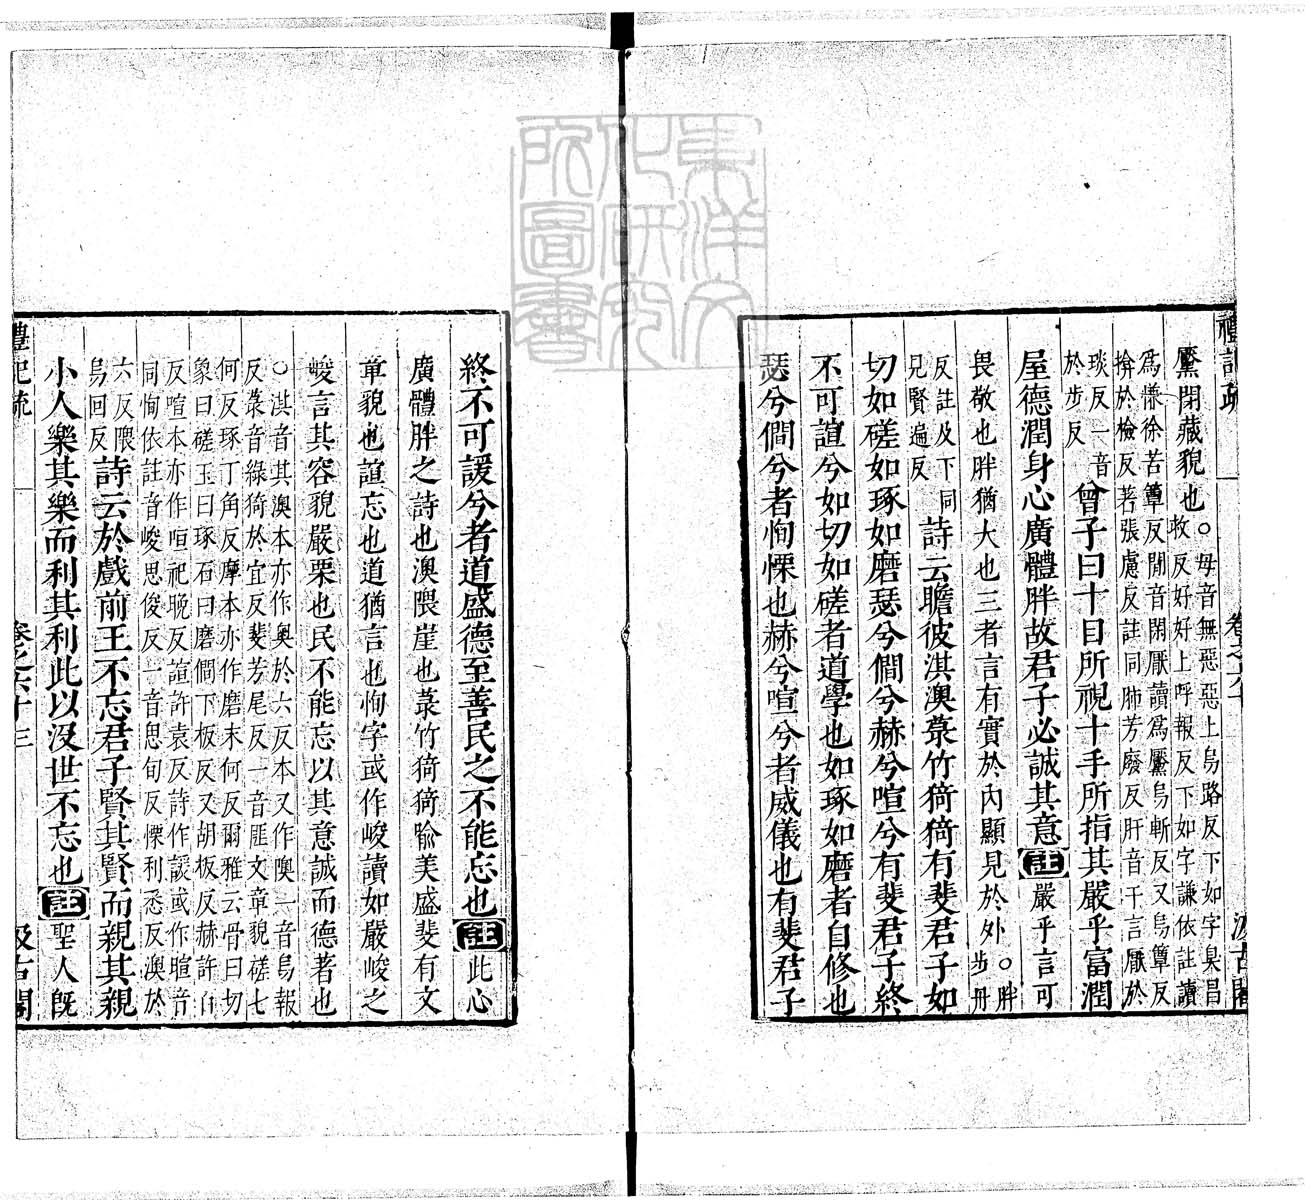 禮記疏 卷之六十 汲古閣
黶閉藏貌也○毋音無惡惡上烏路反下如字臭昌
救反好好上呼報反下如字謙依註讀
爲慊徐苦簟反閒音閑厭讀爲黶烏斬反又烏簟反
揜於檢反著張慮反註同肺芳廢反肝音干言厭於
琰反一音
於步反
曾子曰十目所視十手所指其嚴乎富潤
屋德潤身心廣體胖故君子必誠其意註嚴乎言可
畏敬也胖猶大也三者言有實於內顯見於外○胖
步丹
反註及下同
見賢遍反
詩云瞻彼淇澳菉竹猗猗有斐君子如
切如磋如琢如磨瑟兮僩兮赫兮喧兮有斐君子終
不可諠兮如切如磋者道學也如琢如磨者自修也
瑟兮僩兮者恂慄也赫兮喧兮者威儀也有斐君子
終不可諼兮者道盛德至善民之不能忘也註此心
廣體胖之詩也澳隈崖也菉竹猗猗喻美盛斐有文
章貌也諠忘也道猶言也恂字或作峻讀如嚴峻之
峻言其容貌嚴栗也民不能忘以其意誠而德著也
○淇音其澳本亦作奧於六反本又作隩一音烏報
反菉音綠猗於宜反斐芳尾反一音匪文章貌磋七
何反琢丁角反摩本亦作磨末何反爾雅云骨曰切
象曰磋玉曰琢石曰磨僩下板反又胡板反赫許百
反喧本亦作咺況晚反諠許袁反詩作諼或作喧音
同恂依註音峻思俊反一音思旬反慄利悉反澳於
六反隈
烏回反
詩云於戲前王不忘君子賢其賢而親其親
小人樂其樂而利其利此以沒世不忘也註聖人旣
禮記疏 卷之六十三 汲古閣
東洋文化研究所圖書